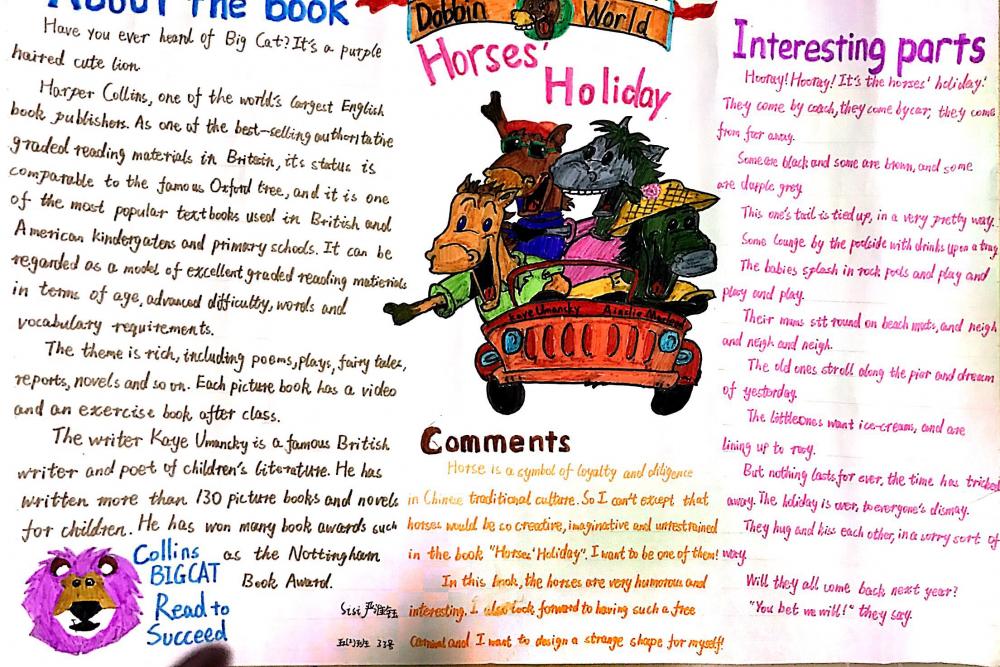 About the book
Have you ever heard of Big Cat? It's a purple
haired cute lion
Harper Collins, one of the world's largest English
book publishers. As one of the best-selling authoritative
graded reading materials in Britain, its status is
comparable to the famous Oxford tree, and it is one
of the most popular textbooks used in British and
American kindergatens and primary schools. It can be
regarded as a model of excellent graded reading materials
in terms of age, advanced difficulty, words and
vocabulary requirements.
The theme is rich, including poems, plays, fairy tales,
reports, novels and so on. Each picture book has a video
and an exercise book after class.
The writer Kaye Umansky is a famous British
writer and poet of children's literature. He has
written more than 130 picture books and novels
for children. He has won many book awards such
as the Nottingham
Book Award.
Collins
BIGCAT
Read to
Succeed
Dobbin World
Horses'
Holiday
Kaye Umansky Ainslie
Comments
Horse is a symbol of loyalty and diligence
in Chinese traditional culture. So I can't except that
horses would be so creative, imaginative and unrestrained
in the book "Horses' Holiday". I want to be one of them!
In this book, the horses are very humorous and
interesting. I also look forward to having such a free
carnival and I want to design a strange shape for myself!
33号
Interesting parts
Hooray! Hooray! It's the horses' holiday!
They come by coach, they come by car, they come
from far away.
Some are black and some are brown, and some
are dapple grey
This one's tail is tied up, in a very pretty way.
Some lounge by the poolside with drinks upon a tray
The babies splash in rock pools and play and
play and play.
Their mums sit round on beach mats, and neigh
and neigh and neigh.
The old ones stroll along the pier and dream
of yesterday.
The little ones want ice-cream, and are
lining up to
But nothing lasts for ever, the time has tricked
away. The holiday is over, to everyone's dismay.
They hug and kiss each other, in a sorry sort of
way.
Will they all come back next year?
"You bet we will!" they say.